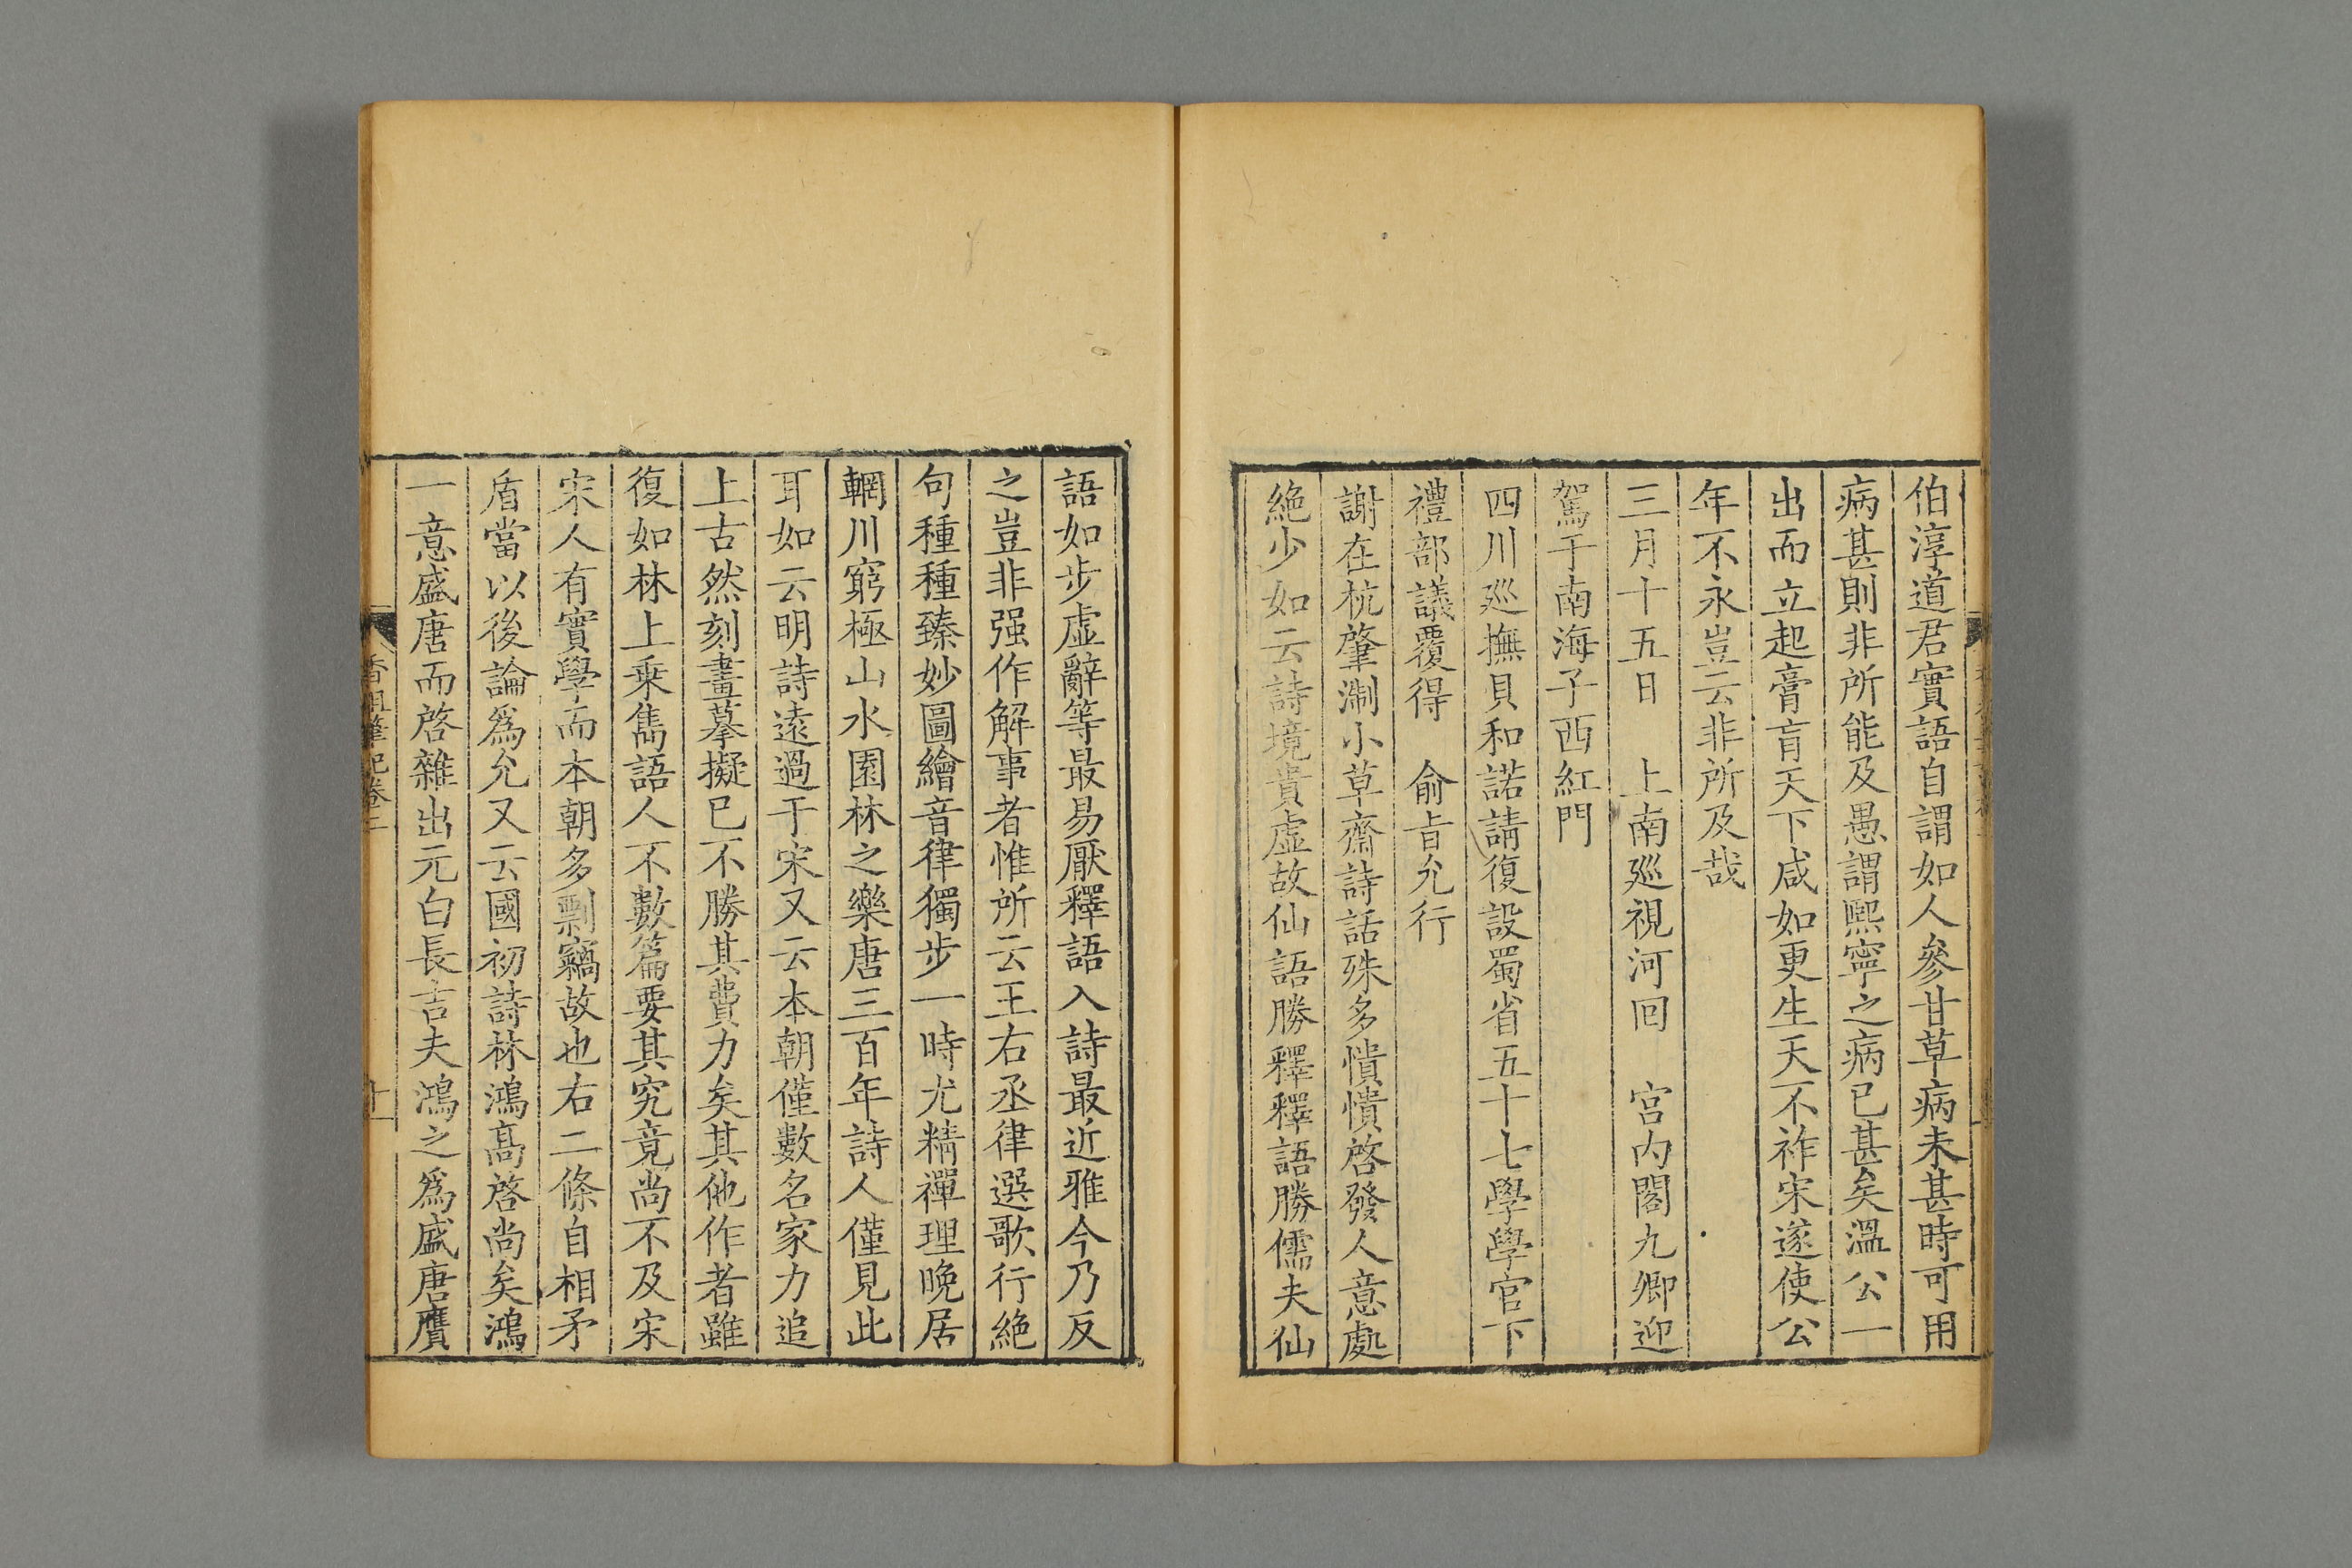 伯淳道君實語自謂如人參甘草病未甚時可用
病甚則非所能及愚謂熈寧之病已甚矣溫公一
出而立起膏肓天下咸如更生天不祚宋遂使公
年不永豈云非所及哉
三月十五日　上南廵視河回　宮內閣九卿迎
駕于南海子西紅門
四川廵撫貝和諾請復設蜀省五十七學學官下
禮部議覆得　俞旨允行
謝在杭肇淛小草齋詩話殊多憒憒啓發人意處
絕少如云詩境貴虛故仙語勝釋釋語勝儒夫仙
語如步虛辭等最易厭釋語入詩最近雅今乃反
之豈非强作解事者惟所云王右丞律選歌行絕
句種種臻妙圖繪音律獨步一時尤精禪理晚居
輞川窮極山水園林之樂唐三百年詩人僅見此
耳如云明詩遠過于宋又云本朝僅數名家力追
上古然刻畫摹擬已不勝其費力矣其他作者雖
復如林上乘雋語人不數篇要其究竟尚不及宋
宋人有實學而本朝多剽竊故也右二條自相矛
盾當以後論爲允又云國初詩林鴻高啓尚矣鴻
一意盛唐而啓雜出元白長吉夫鴻之爲盛唐贋
香祖筆記卷二
十一